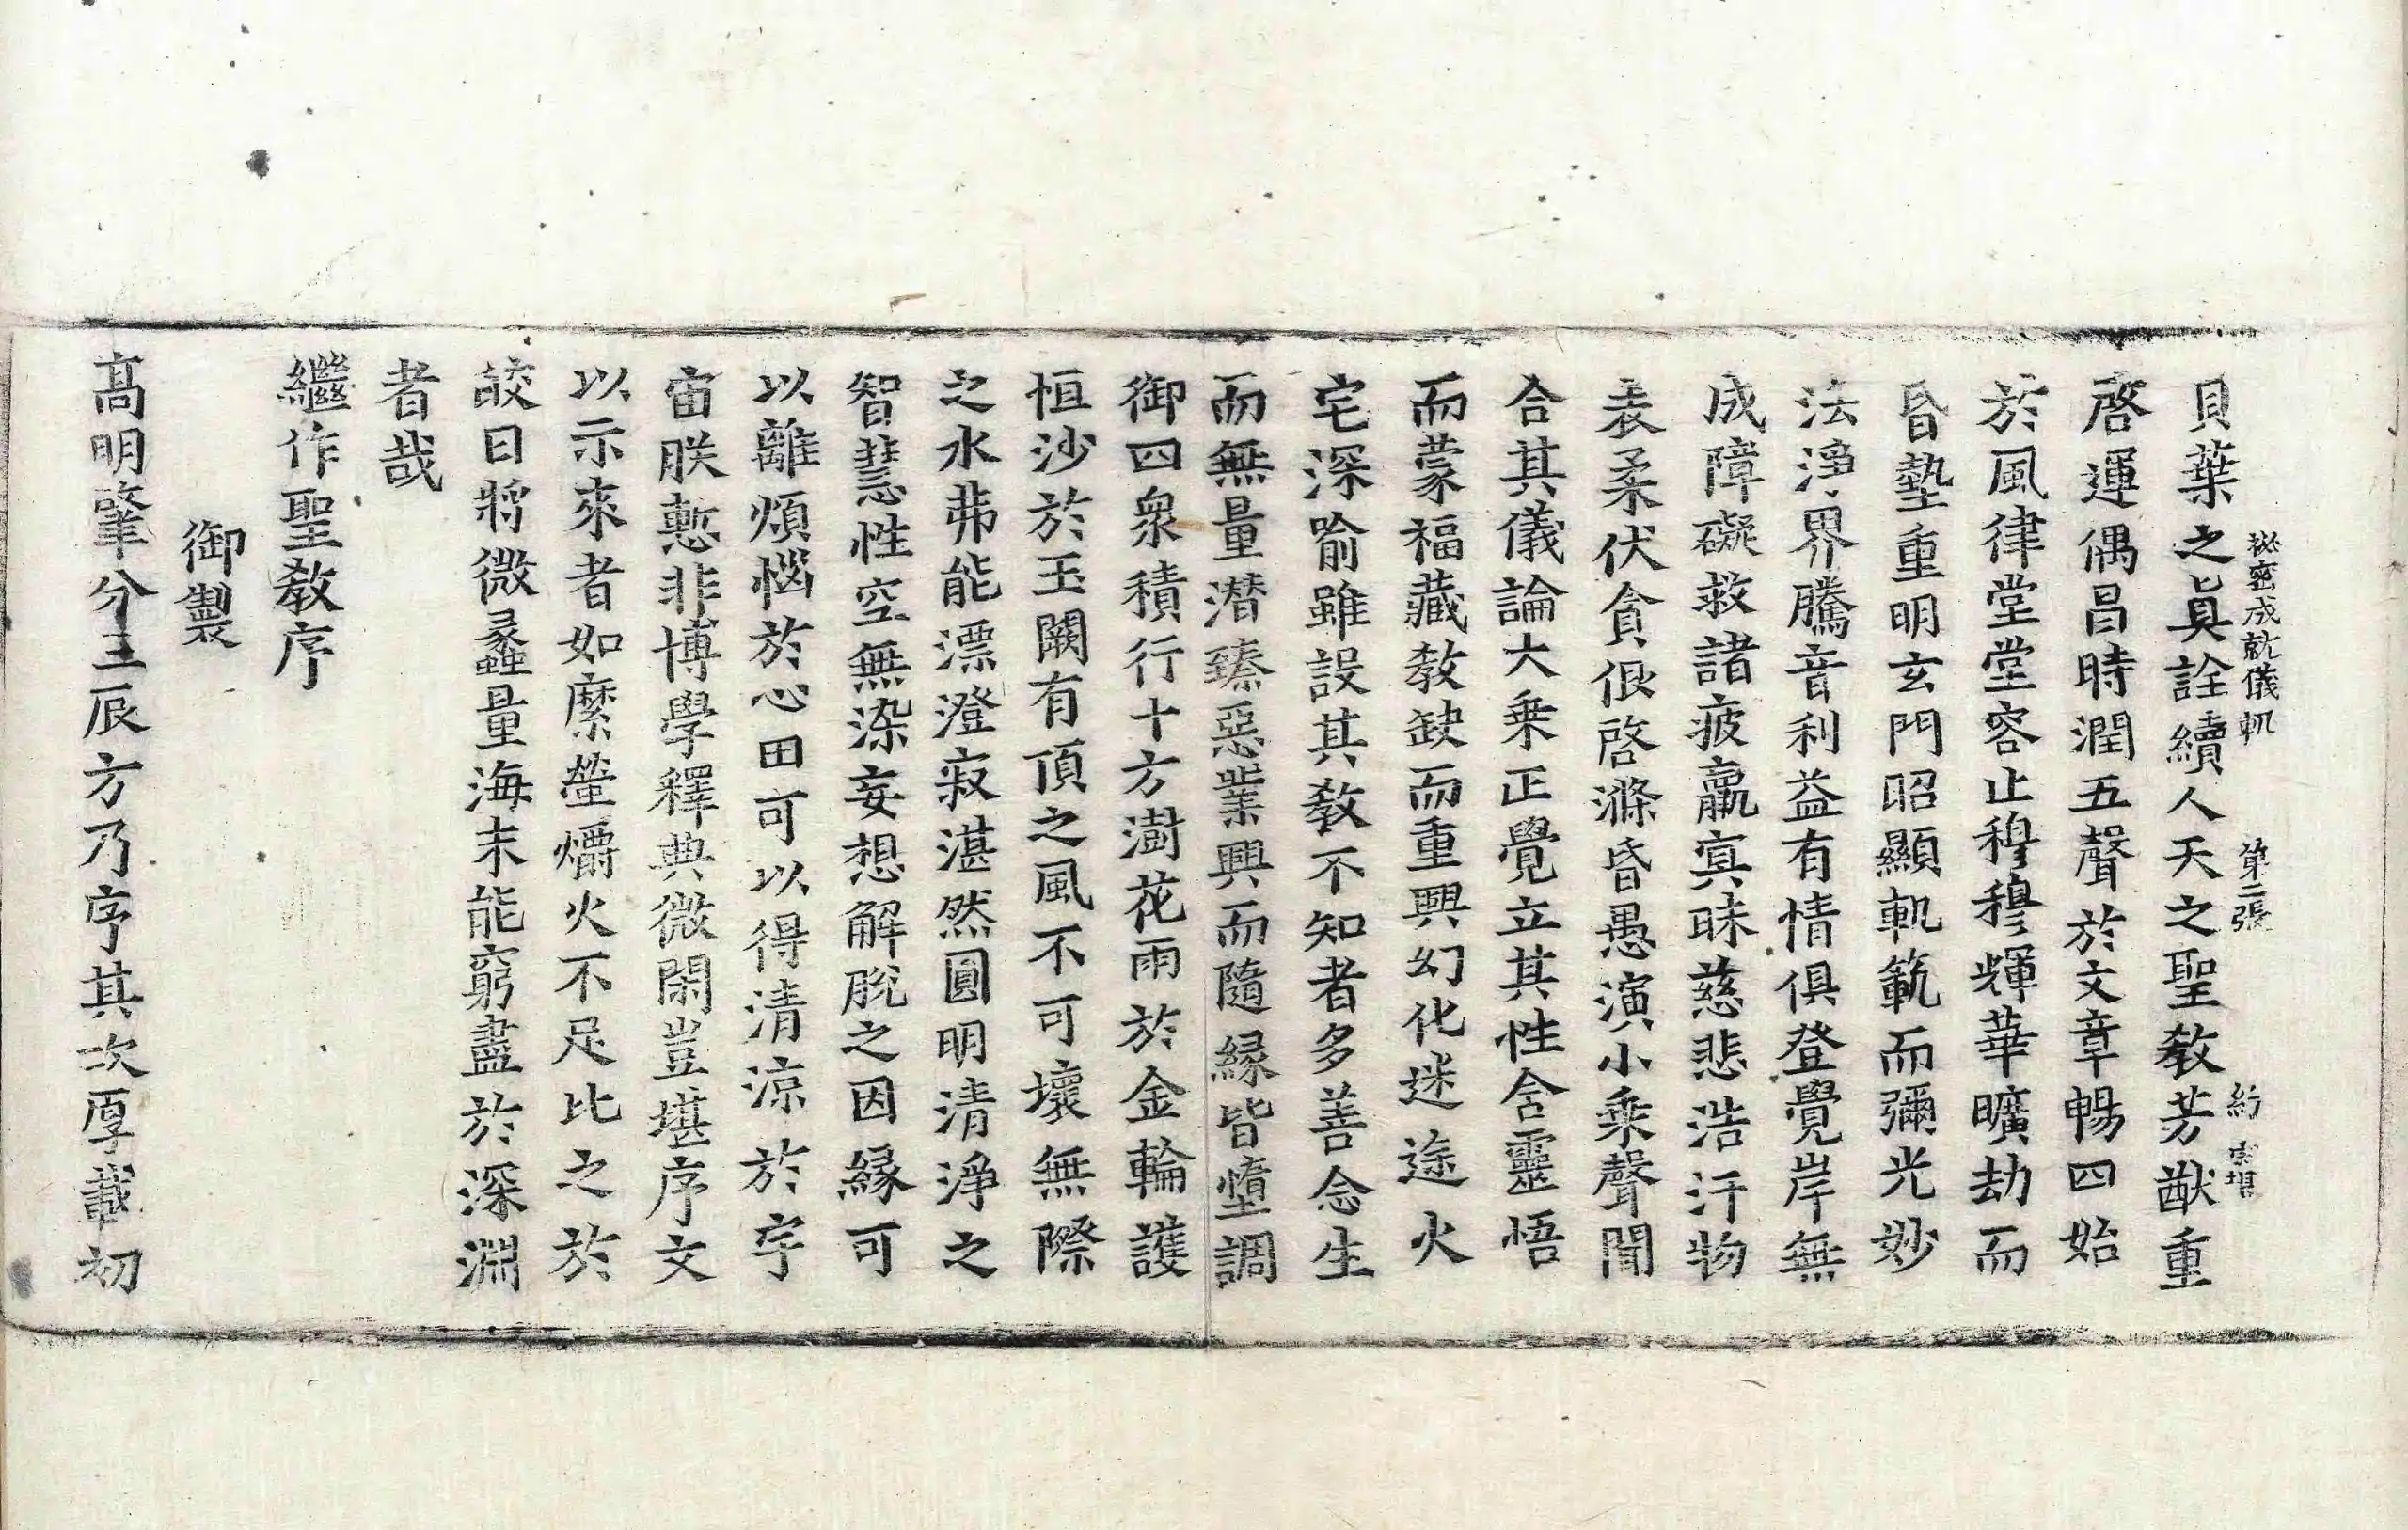 秘密成就儀軌　第二張　紡
貝葉之真詮續人天之聖教芳猷重
啓運偶昌時潤五聲於文章暢四始
於風律堂堂容止穆穆輝華曠劫而
昏墊重明玄門昭顯軌範而彌光妙
法淨界騰音利益有情俱登覺岸無
成障礙救諸疲羸寘昧慈悲浩汗物
表柔伏貪佷啓滌昏愚演小乗聲聞
合其儀論大乗正覺立其性含靈悟
而蒙福藏教缺而重興幻化迷途火
宅深喻雖設其教不知者多善念生
而無量潛臻惡業興而隨緣皆墮調
御四衆積行十方澍花雨於金輪護
恒沙於玉闕有頂之風不可壞無際
之水弗能漂澄寂湛然圓明清淨之
智慧性空無染妄想解脫之因緣可
以離煩惱於心田可以得清涼於宇
宙朕慙非博學釋典微閑豈堪序文
以示來者如縻螢爝火不足比之於
皎日將微蠡量海末能窮盡於深淵
者哉
繼作聖教序
御製
髙明肇分三辰方乃序其次厚載初